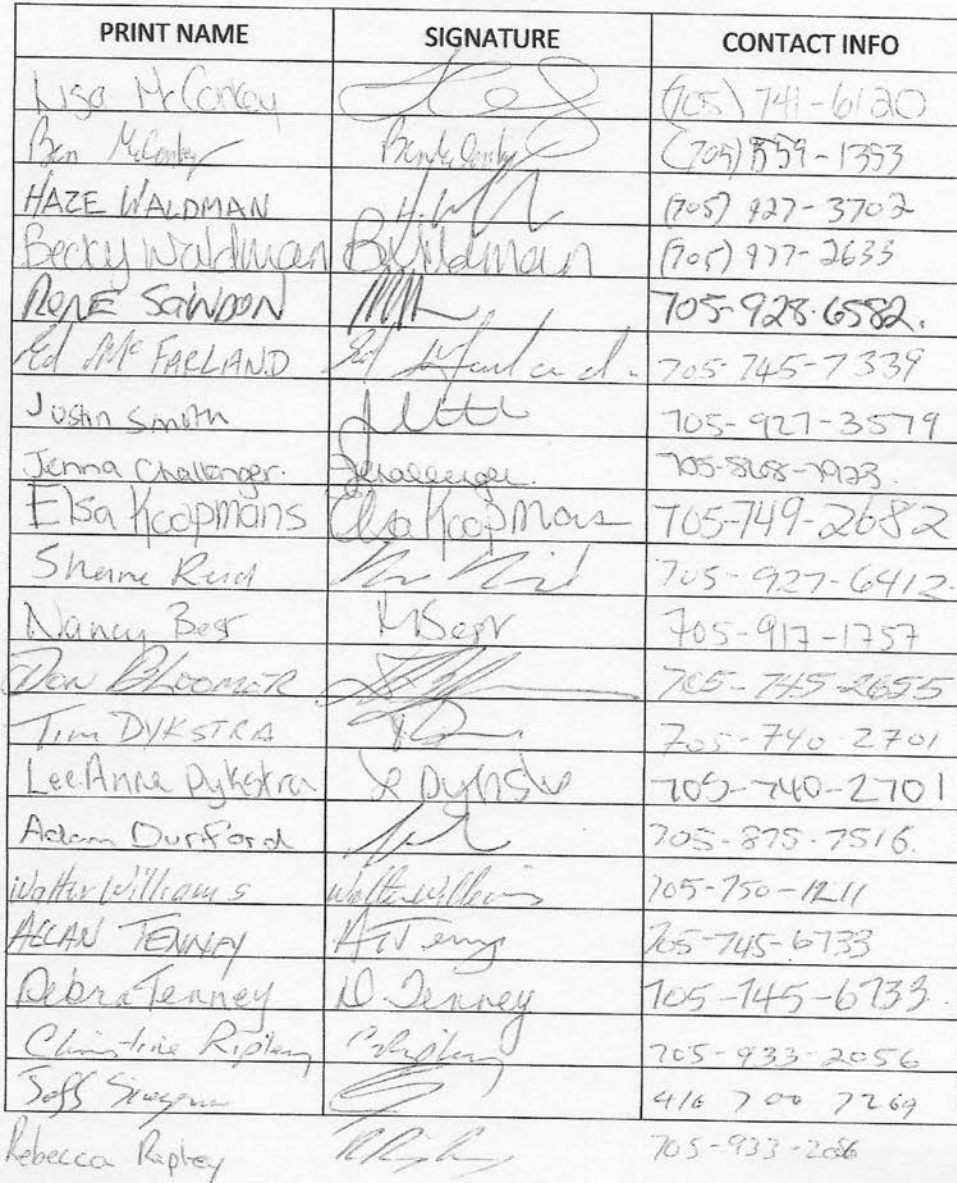 PRINT NAME SIGNATURE CONTACT INFO
Lisa McConkey (705) 741-6120
Ben McConkey Ben McConkey (705) 559-1353
HAZE WALDMAN H. W (705) 927-3702
Becky Waldman B Waldman (705) 977-2633
RENE SAINDON 705-928-6582.
Ed Mc FARLAND Ed McFarland. 705-745-7339
Justin Smith 705-927-3579
Jenna Challenger. JChallenger. 705-868-7923.
Elsa Koopmans Elsa Koopmans 705-749-2682
Sherrie Reid 705-927-6412.
Nancy Best NBest 705-917-1757
Don BLOOMER 705-745-2655
Tim DYKSTRA 705-740-2701
LeeAnne Dykstra L Dykstra 705-740-2701
Adam Durford 705-875-7516.
Walter Williams Walter Williams 705-750-1211
ALLAN TENNEY A Tenney 705-745-6733
Debra Tenney D. Tenney 705-745-6733.
Christine Ripley C Ripley 705-933-2056
Jeff 416 700 7269
Rebecca Ripley R Ripley 705-933-2056